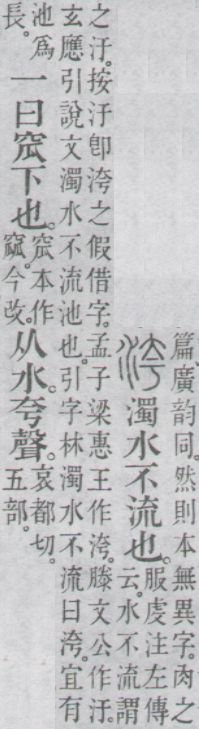 篇、廣韵同。然則本無異字。肉之
洿 濁水不流也。服虔注左傳云。水不流謂
之汙。按汙卽洿之假借字。孟子梁惠王作洿。滕文公作汙。
玄應引說文濁水不流池也。引字林濁水不流曰洿。宜有
池爲長。一曰窊下也。窊本作窳。今改。从水。夸聲。哀都切。五部。